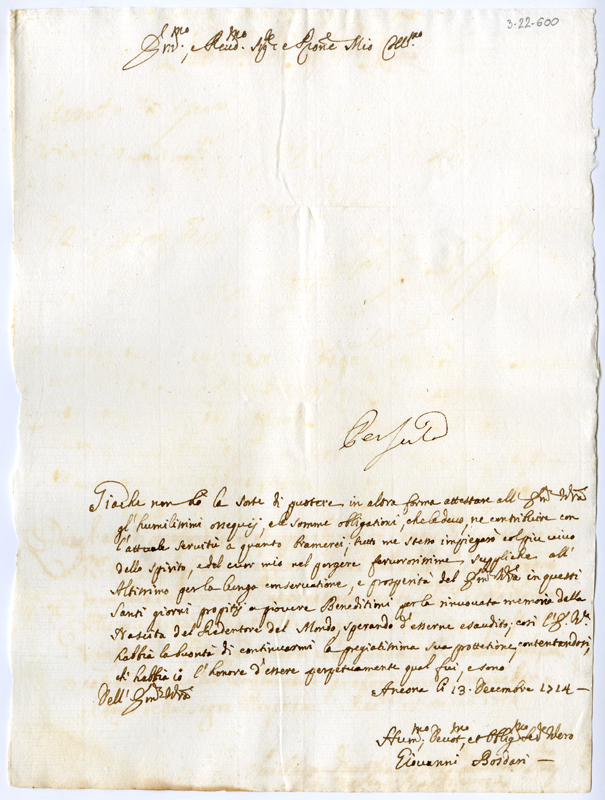 3-22-600
Em.mo, e Reud.mo Sig.r e Pron.e Mio Coll.mo
Giache non hò la sorte di potere in altra forma attestare all' Em.za V.ra
gl' humilissimi ossequij, e le somme obligationi, che le devo, ne contribuire con
l'attuale servitù a quanto bramerei; tutto me stesso impiegarò col più vivo
dello spirito, e del cuor mio nel porgere fervorosissime suppliche all'
Altissimo per la lunga conservatione, e prosperità del Em.za V.ra in questi
Santi giorni propitij a piovere Beneditioni per la rinuovata memoria della
Nascita del Redentore del Mondo, sperando d'esserne esaudito; così l'E. V.ra
habbia la buontà di continuarmi la pregiatissima sua protettione, contentandosi,
ch' habbia io l'honore d'essere perpetuamente qual fui, e sono
Dell' Em.za V.ra
Ancona li 13. Decembre 1714 —
Hum.mo, Deuot.mo, et Oblig.mo Ser.e Vero
Giovanni Bosdari —